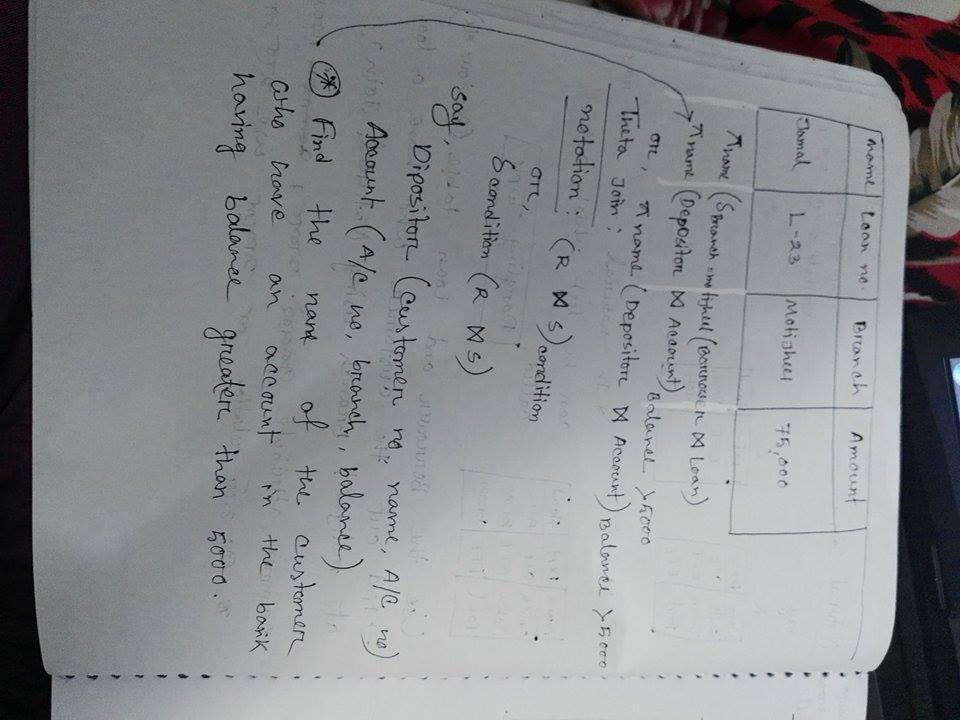 name Loan no. Branch Amount
Jamal L-23 Motijheel 75,000
π name (δ Branch = motijheel (Borrower ⋈ Loan)
π name (Depositor ⋈ Account) Balance >5000
or, π name (Depositor ⋈ Account) Balance >5000
Theta Join:
notation: (R ⋈ S) condition
or,
δ condition (R ⋈ S)
say,
Dipositor (customer no, name, A/C no)
Account (A/C no, branch, balance)
* Find the name of the customer
who have an account in the bank
having balance greater than 5000.